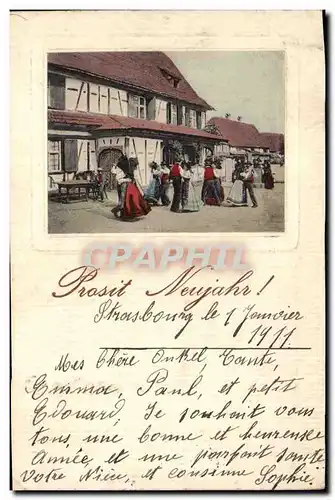 CPA-PHOTO
Prosit Neujahr!
Strasbourg le 1 Janvier
1911
Mes Chère Onkel, Tante,
Emma, Paul, et petit
Edouard, Je souhait vous
tous, une bonne et heurense
Année et une parfait santé
Votre Nièce, et cousinne Sophie.